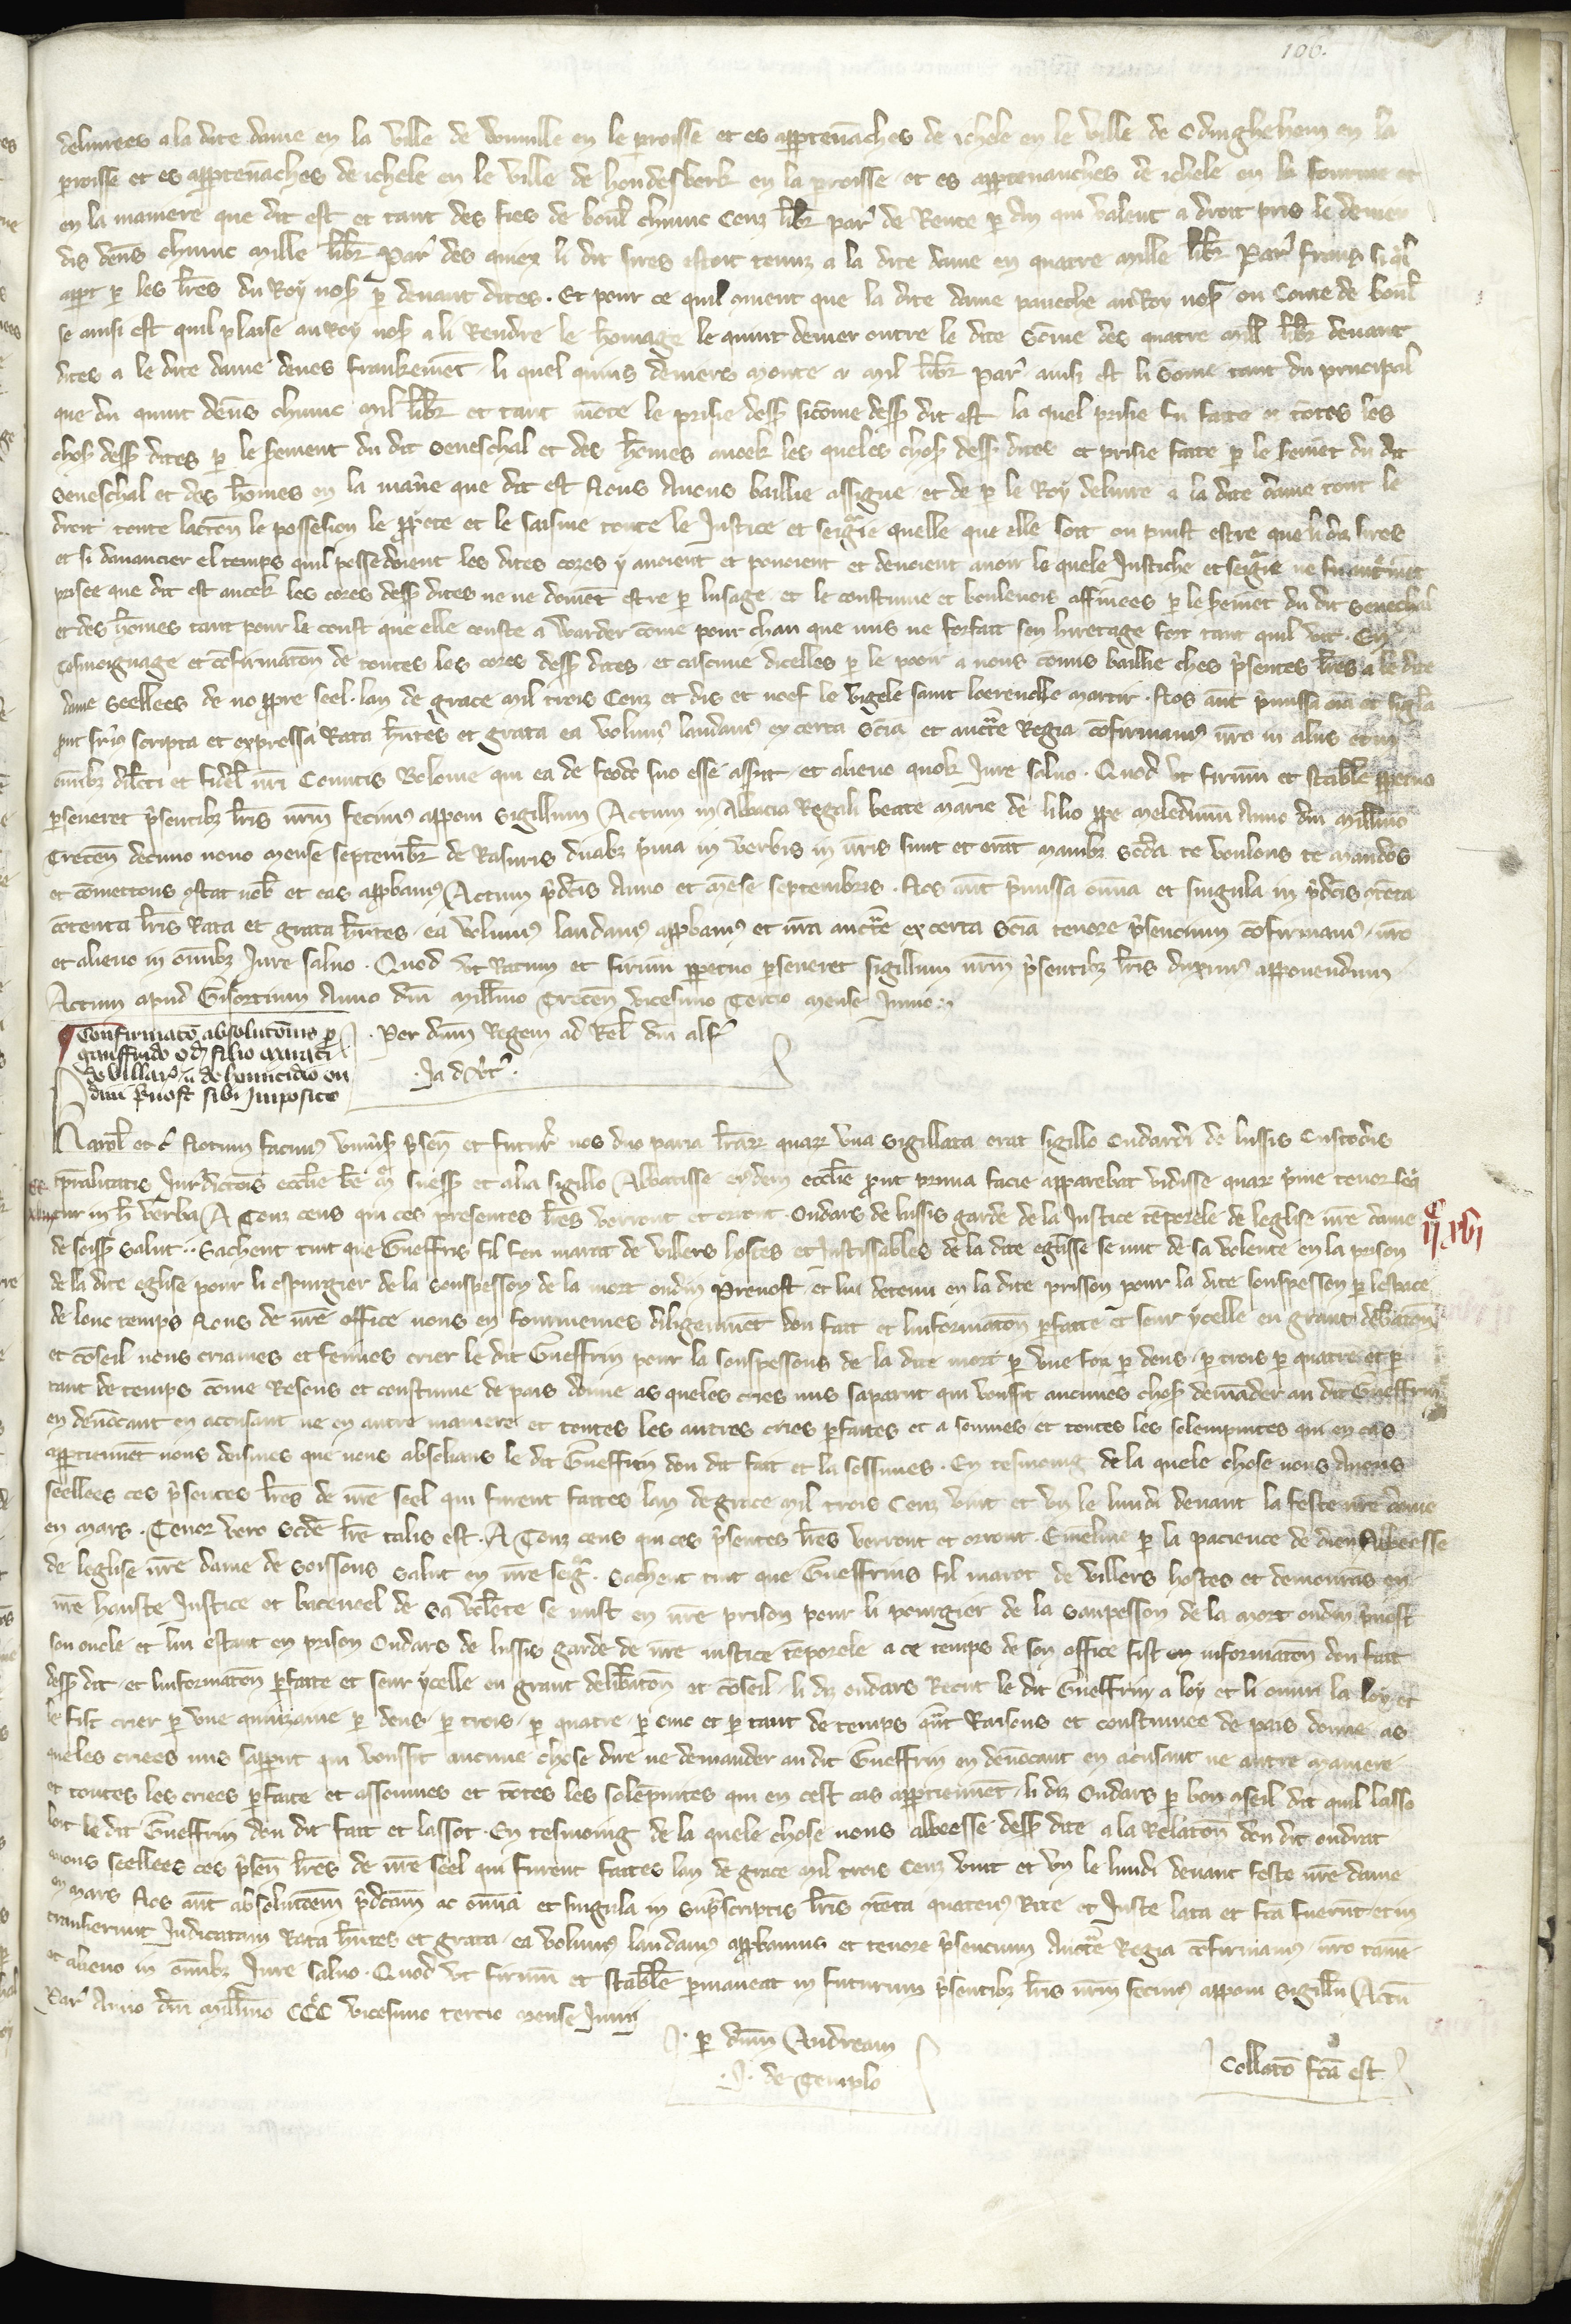 106.
delivrees a la dite dame en la ville de Wouville en le proisse et es apptenāches de ichele en le ville de Odinghehem en la
proisse et es apptenāches de ichele en le ville de hondesberk en la proisse et es apptenanches de ichele en la fourme et
en la maniere que dit est et tant des fies de boul chincc Cenz libr par de Rente p an qui valent a droit pris le denier
dis dens chincc mille libr par des quiex li dit sires estoit tenuz a la dite dame en quatre mille libr par frans si q̄l
appt p les lrēs du Roy nos p devant dites. Et pour ce quil avient que la dite dame paueche au Roy nos ou Conte de boul
se ainsi est quil plaise au Roy nos a li Rendre le homage le quint denier outre le dite sōme des quatre mil libr devant
dites a le dite dame deues frankemēt li quel quins deniers monte a mil libr par ainsi est li Somē tant du principal
que du quint dens chincc mil libr et tant mōte le prisie dess sicōme dess dit est la quel prisie fu faite a toutes les
chos dess dites p le serment du dit Seneschal et des hōmes aveck les queles chos dess dites et prisie faite p le sermēt du dit
Seneschal et des hōmes en la manie que dit est Nous Avons baillie assigne et de p le Roy delivre a la dite dame tout le
droit toute lactōn le possession le ppiete et le saisine toute le Justice et seigrie quelle que elle soit ou puist estre que li diz sires
et si davancier el temps quil possedoient les dites cozes y avoient et pouoient et devoient avoir le quele Justiche et seigrie ne fu
prisee que dit est aveck les cozes dess dites ne ne doivēt estre p lusage et le constume et boulenois affinees p le sermēt du dit Seneschal
et des hōmes tant pour le coust que elle couste a warder cōme pour chau que nus ne forfait son hiretage fors tant quil vit. En
tesmoignage et cōfirmatōn de toutes les cozes dess dites et cascune dicelles p le pooir a nous cōmis baillie ches psentes lrēs a le dite
dame Seellees de no ppre seel. lan de grace mil trois Cenz et dis et noef le vigele saint leerencke martir. Nos aūt pmissa oīa et singla
put supra scripta et expressa Rata hntes et grata ea volumus laudamus ex certa scia et aucte Regia cōfirmamus nro in aliis et in
omībz dilecti et fidel nri Comitis Bolonie qui ea de feodo suo esse assit et alieno quok Jure salvo. Quod ut firmū et stable ppetuo
perseveret psentibz lris nrm fecimus apponi Sigillum Actum in Abbacia Regali beate marie de lilio ppe meledunm Anno dm millmo
Trecen decimo nono mense septembr de Rasuris duabz prima in verbis in nris sunt et erāt manibz scda te voulons te mandōs
et cōmettons gstat nob et eas appbamus Actum pdcis Anno et mense septembris. Nos aūt pmissa omīa et singula in pdcis gtēta
cōtenta lris Rata et grata hntes ea volumus laudamus appbamus et nra aucte ex certa scia tenore psencium cōfirmamus nro
et alieno in omībz Jure salvo. Quod ut Ratum et firmū ppetuo perseveret sigillum nrm psentibz lris duximus apponendum
Actum apud Gisortium Anno dm millmo Trecen vicesimo Tercio mense Junio.
Confirmatō absolutōnis p
gauffrido odz filio maraci
de villarz de homicidio ou
dini pvost sibi Imposito
Per dnm Regem ad Rel dm alf
Ja d vtr.
Karol etc Notum facimus univs psen et futur nos duo paria lrarz quarz una sigillata erat sigillo Oudardi de lussis Custodis
tpralitatis Jurdictōis ecclie be m suess et alia sigillo Abbatisse eiusdem ecclie prout prima facie apparebat vidisse quarz pme tenor seq
tur in h verba A Touz ceus qui ces presentes lrēs verront et orront. Oudars de lussis garde de la Justice tēporele de leglise nre dame
de soiss Salut. Sachent tuit que Gueffris fil feu marat de villers hostes et Justissables de la dite eglisse se mit de sa volente en la prison
de la dite eglise pour li espurgier de la souspesson de la mort oudin Prevost et lui detenu en la dite prisson pour la dite souspesson p lespace
de lonc temps Nous de nre office nous en fourmemes diligenmēt dou fait et linformatōn pfaitte et seur ycelle eu grant delibatōn
et cōseil nous criames et feimes crier le dit Gueffrin pour la souspessons de la dite mort p une foiz p deus p trois p quatre et p
tant de temps cōme Resons et constume de pais donne as queles cries nus saparut qui vousit aucunes chos demāder au dit Gueffrin
en denōcant en accusant ne en autre maniere et toutes les autres cries pfaites et a sonnes et toutes les solempnites qui en cas
appttienēt nous deismes que nous absolians le dit Gueffrin dou dit fait et la sossimes. En tesmoing de la quele chose nous Avons
seellees ces psentes lrēs de nre seel qui furent faites lan de grace mil trois Cenz vint et un le lundi devant la feste nre dame
en mars. Tenor vero scde lre talis est. A Touz ceus qui ces psentes lrēs verront et orront. Emeline p la pacience de dieu Abbeesse
de leglise nre dame de soissons salut en nre seigr. Sachent tuit que Gueffrins fil marot de villers hostes et demourās en
nre hauste Justice et baceneel de sa volēte se mist en nre prison pour li pourgier de la soupesson de la mort oudin pvost
son oncle et lui estant en prison Oudars de lussis garde de nre iustice tēporele a ce temps de son office fist en informatōn dou fait
dess dit et linformatōn pfaitte et seur ycelle eu grant delibatōn et cōseil li diz oudars Recut le dit Gueffrin a loy et li ouvri la loy et
le fist crier p une quinzaine p deus p trois p quatre p cinc et p tant de temps qūt Raisons et constumes de pais donne as
queles criees nus sapput qui vousit aucune chose dire ne demander au dit Gueffrin en denōcant en acusant ne autre maniere
et toutes les criees pfaite et assonnes et toutes les solēpnites qui en cest cas appttienēt li diz Oudars p bon gseil dit quil lasso
loit le dit Gueffrin dou dit fait et lassot. En tesmoing de la quele chose nous abbeesse dess dite a la Relatōn dou dit oudrat
avons seellees ces psen lrēs de nre seel qui furent faites lan de grace mil trois cenz vint et un le lundi devant feste nre dame
en mars Nos aūt absolutōem pdctam ac omīa et singula in supscriptis lris gtēta quatenus Rite et Juste lata et fca fuerūt et in
transierunt Judicatam Rata hntes et grata ea volumus laudamus appbamus et tenore psencium Aucte Regia cōfirmamus nro tame
et alieno in omībz Jure salvo. Quod ut firmū et stable pmaneat in futurum psentibz lris nrm fecimus apponi sigillū Actū
Par Anno dm millmo CCC vicesimo tercio mense Junii
p dnm Andream
J. de Templo
Collatō fca est
IIc xvi